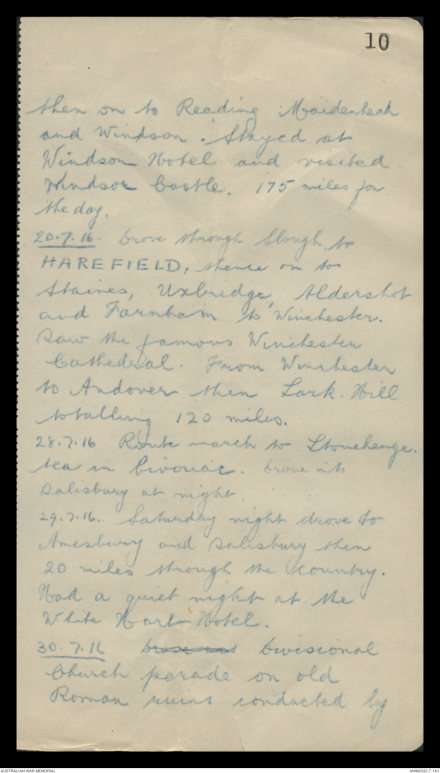 10
then on to Reading Maidenhead
and Windsor. Stayed at
Windsor Hotel and visited
Windsor Castle. 175 miles for
the day.
20.7.16. Drove through Slough to
HAREFIELD, thence on to
Staines, Uxbridge, Aldershot
and Farnham to Winchester.
Saw the famous Winchester
Cathedral. From Winchester
to Andover then Lark Hill
totalling 120 miles.
28.7.16 Route march to Stonehenge.
tea in bivouac. Drove into
Salisbury at night
29.7.16. Saturday night drove to
Amesbury and Salisbury then
20 miles through the country.
Had a quiet night at the
White Hart Hotel.
30.7.16 Divisional
Church parade on old
Roman ruins conducted by
AUSTRALIAN WAR MEMORIAL